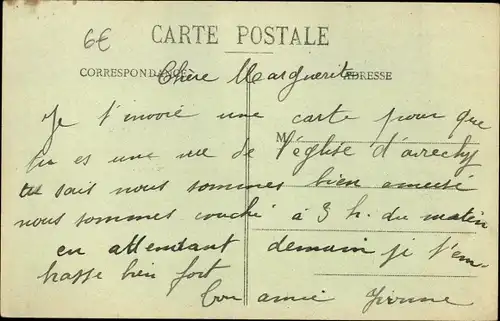 6€
CARTE POSTALE
CORRESPONDANCE
ADRESSE
Chère Marguerite
Je t'envoie une carte pour que
M
tu es une vue de l'église d'avrechy
sait nous sommes bien amusé
nous sommes couché à 3 h. du matin
en attendant demain je t'em-
brasse bien fort
Ton amie Yvonne